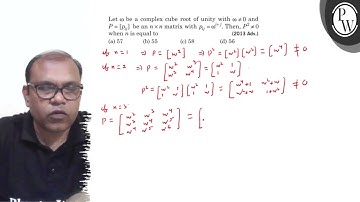 Let ω be a complex cube root of unity with ω ≠ 0 and
P = [p_ij] be an n × n matrix with p_ij = ω^(i+j). Then, P² ≠ 0
when n is equal to (2013 Adv.)
(a) 57 (b) 55 (c) 58 (d) 56
if n=1 ⇒ P = [ω²] ⇒ P² = [ω²][ω²] = [ω⁴] ≠ 0
if n=2 ⇒ P = [ω² ω³ ; ω³ ω⁴] = [ω² 1 ; 1 ω]
P² = [ω² 1 ; 1 ω] [ω² 1 ; 1 ω] = [ω⁴+1 ω²+ω ; ω²+ω 1+ω²] ≠ 0
if n=3
P = [ω² ω³ ω⁴ ; ω³ ω⁴ ω⁵ ; ω⁴ ω⁵ ω⁶] = [